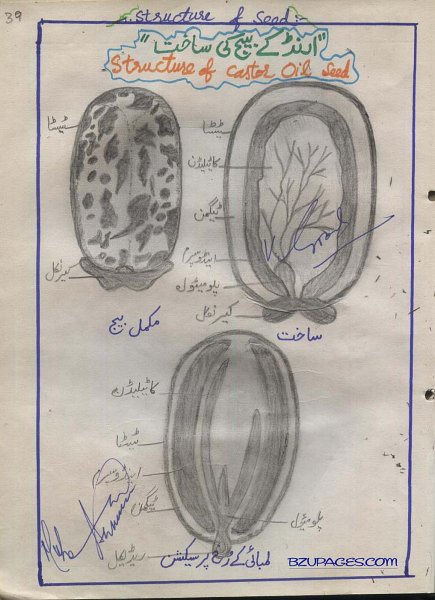 39
Structure of Seed:
"ارنڈ کے بیج کی ساخت"
Structure of Castor Oil Seed
ٹیسٹا
کیرنکل
مکمل بیج
ٹیسٹا
کاٹیلیڈن
ٹیگمن
اینڈوسپرم
پلومیول
کیرنکل
ساخت
کاٹیلیڈن
ٹیسٹا
اینڈوسپرم
ٹیگمن
پلومیول
ریڈیکل
لمبائی کے رخ پر سیکشن
BZUPAGES.COM